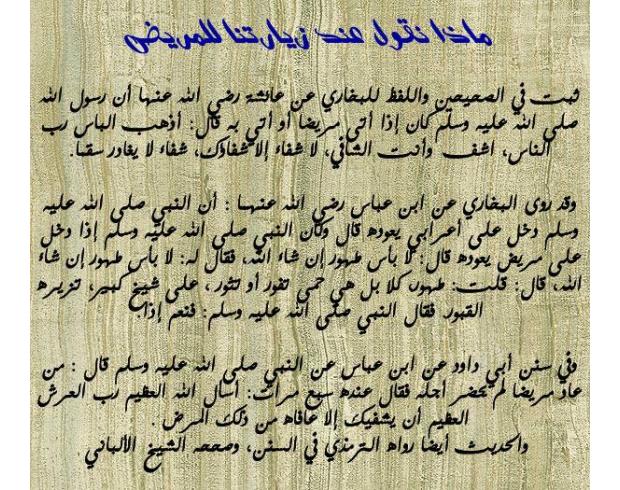 ماذا نقول عند زيارتنا للمريض
ثبت في الصحيحين واللفظ للبخاري عن عائشة رضي الله عنها أن رسول الله
صلى الله عليه وسلم كان إذا أتى مريضا أو أتي به قال: أذهب الباس رب
الناس، اشف وأنت الشافي، لا شفاء إلا شفاؤك، شفاء لا يغادر سقما.
وقد روى البخاري عن ابن عباس رضي الله عنهما : أن النبي صلى الله عليه
وسلم دخل على أعرابي يعوده قال وكان النبي صلى الله عليه وسلم إذا دخل
على مريض يعوده قال: لا بأس طهور إن شاء الله، فقال له: لا بأس طهور إن شاء
الله، قال: قلت: طهور، كلا بل هي حمى تفور أو تثور، على شيخ كبير، تزيره
القبور فقال النبي صلى الله عليه وسلم: فنعم إذا.
وفي سنن أبي داود عن ابن عباس عن النبي صلى الله عليه وسلم قال : من
عاد مريضا لم يحضر أجله فقال عنده سبع مرات: أسأل الله العظيم رب العرش
العظيم أن يشفيك إلا عافاه من ذلك المرض .
والحديث أيضا رواه الترمذي في السنن، وصححه الشيخ الألباني .